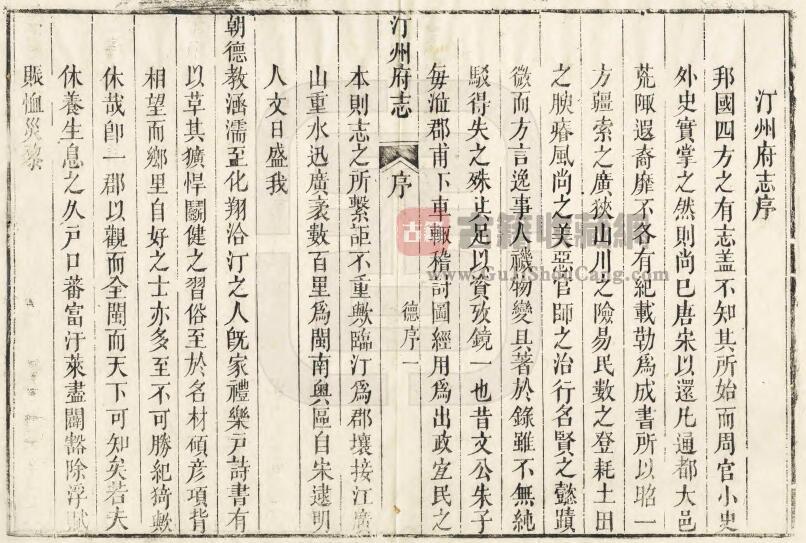 汀州府志序
邦國四方之有志盖不知其所始而周官小史
外史實掌之然則尚巳唐宋以還凡通都大邑
荒陬遐裔靡不各有紀載勒爲成書所以昭一
方疆索之廣狹山川之險易民數之登耗土田
之腴瘠風尚之美惡官師之治行名賢之懿蹟
微而方言逸事人禨物變具著於錄雖不無純
駁得失之殊此足以資攷鏡一也昔文公朱子
每涖郡甫下車輙稽討圖經用爲出政宜民之
汀州府志
序
德序一
本則志之所繫詎不重歟臨汀爲郡壤接江廣
山重水迅廣袤數百里爲閩南奧區自宋逮明
人文日盛我
朝德教涵濡至化翔洽汀之人旣家禮樂戸詩書有
以草其獷悍鬬健之習俗至於名材碩彦項背
相望而鄉里自好之士亦多至不可勝紀猗歟
休哉卽一郡以觀而全閩而天下可知矣若夫
休養生息之久戸口蕃富汙萊盡闢豁除浮賦
賑恤災黎
古籍收藏網
www.GuJiShouCang.com